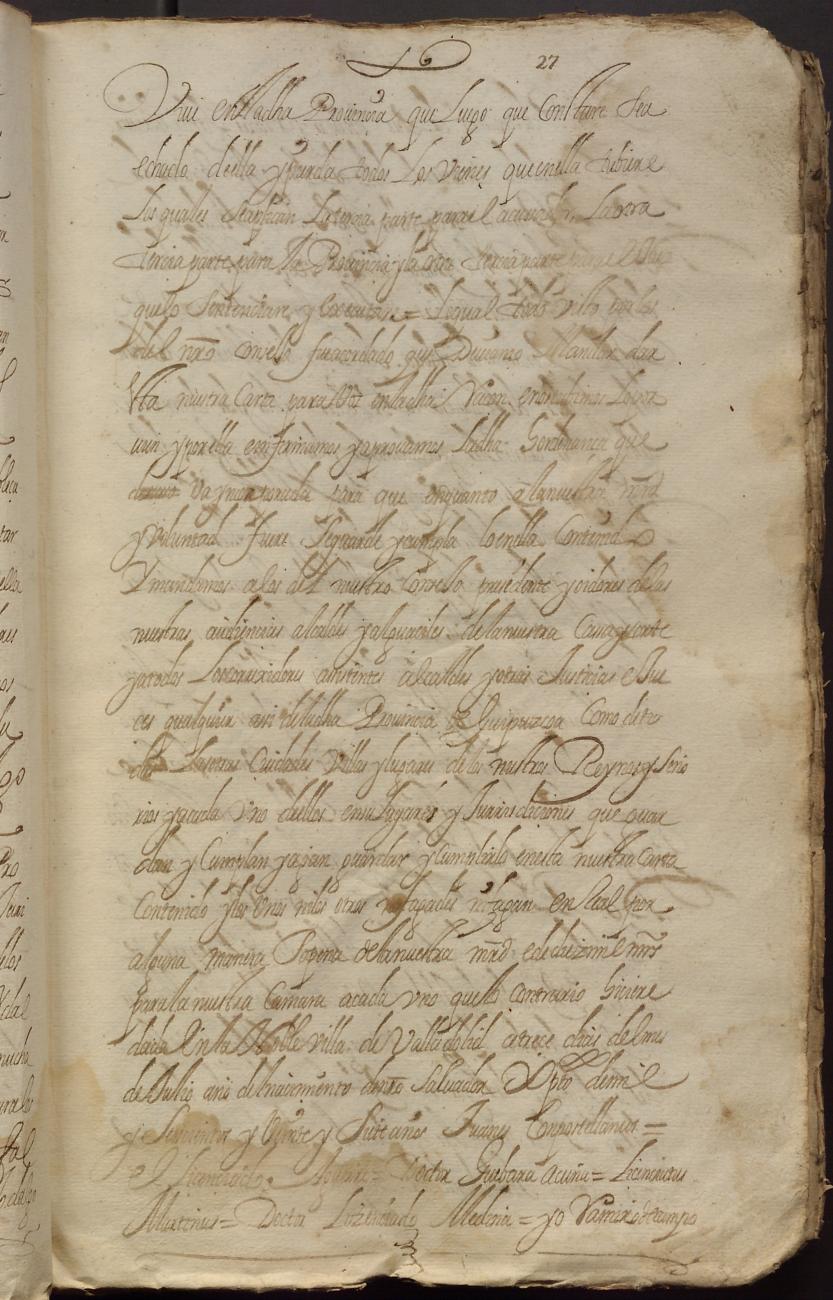 27
Viui enlladha Prouinçia que Luego que Constare sea
echado della y pierda todos Los vienes que enella tubiere
los quales se aplican La tercia parte para el acusador La otra
tercia parte para la Prouinçia y la otra tercia parte para el Juez
que lo sentenciare y executare = Lo qual todo visto por los
del nro Consejo fue acordado que Deuiamos Mandar dar
esta nuestra Carta para Vos en la dha Raçon e nos tubimos lo por
uien y por ella confirmamos y aprouamos La dha hordenança que
de suso Va yncorporada para que en quanto a la nuestra mrd
y Voluntad fuere se guarde y cumpla lo enella Contenido
Y mandamos a los del nuestro Consejo presidente y oidores de las
nuestras audiençias alcaldes y alguaciles de la nuestra Cassa y corte
y a todos Los corregidores asistentes alcaldes y otras Justicias e Jue
ces qualquier asi de la dha Prouinçia de Guipuzcoa Como de to
das Las otras Ciudades Villas y lugares de los nuestros Reynos y Seño
rios y a cada vno dellos en sus lugares y Jurisdiciones que guar
den y Cumplan y agan guardar y Cumplir lo enesta nuestra Carta
Contenido y los Vnos ni los otros no fagades ni fagan en de al por
alguna manera So pena de la nuestra mrd e de diez mill mrs
para la nuestra Camara a cada vno que lo contrario hiciere
dada En la Noble villa de Valladolid a trece dias del mes
de Julio año del naçimiento de nro Saluador Xpto de mil e
y quinientos y Veinte y Siete años Juanes Conpostellanus =
el licenciado Aguirre = Doctor Guebara acuña = Licenciatus
Martinus = Doctor Licenciado Medina = yo Ramiro de campo